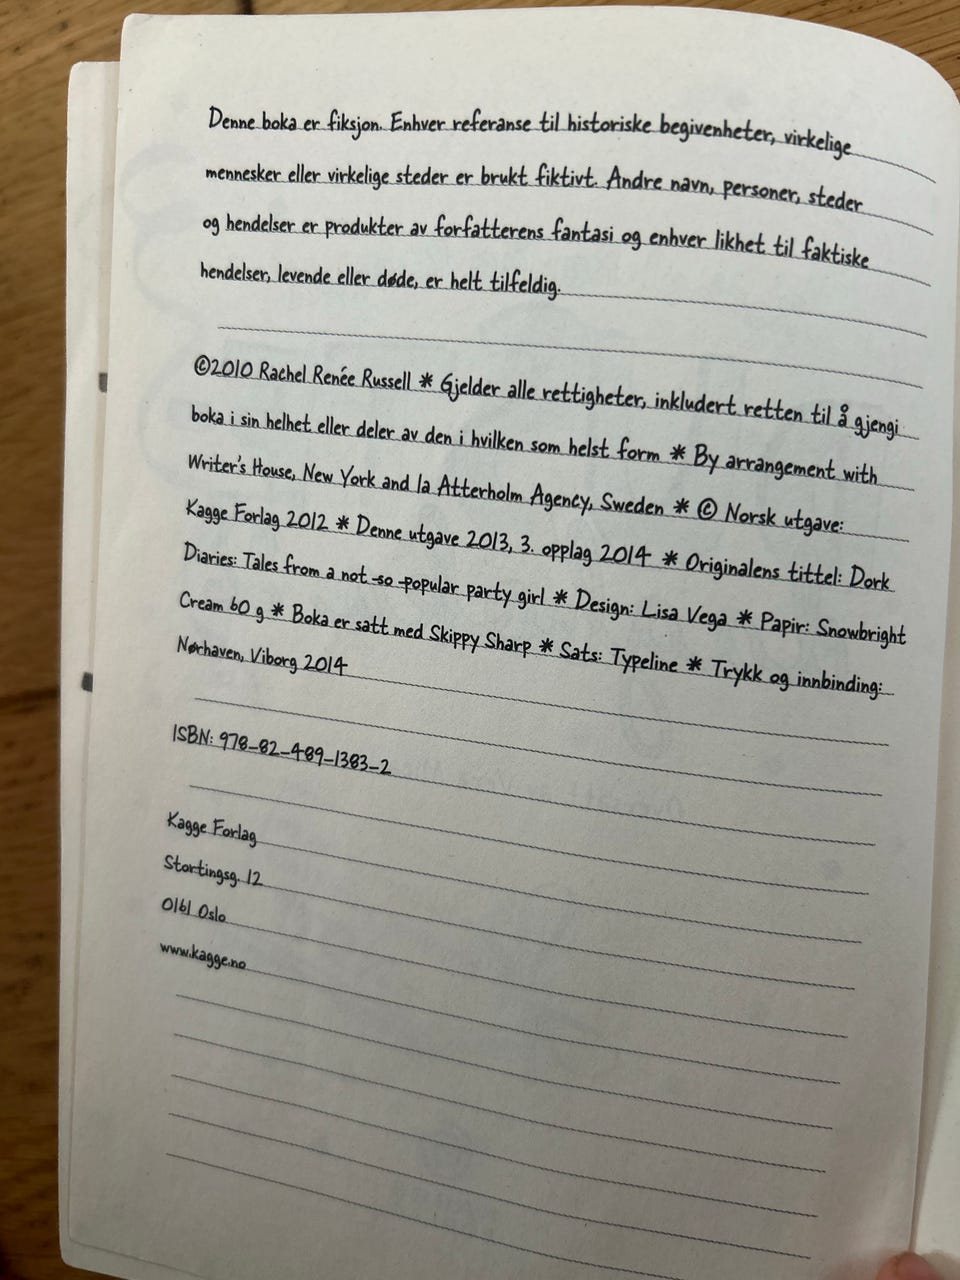 Denne boka er fiksjon. Enhver referanse til historiske begivenheter, virkelige
mennesker eller virkelige steder er brukt fiktivt. Andre navn, personer, steder
og hendelser er produkter av forfatterens fantasi og enhver likhet til faktiske
hendelser, levende eller døde, er helt tilfeldig.
©2010 Rachel Renée Russell * Gjelder alle rettigheter, inkludert retten til å gjengi
boka i sin helhet eller deler av den i hvilken som helst form * By arrangement with
Writer's House, New York and Ia Atterholm Agency, Sweden * © Norsk utgave:
Kagge Forlag 2012 * Denne utgave 2013, 3. opplag 2014 * Originalens tittel: Dork
Diaries: Tales from a not-so-popular party girl * Design: Lisa Vega * Papir: Snowbright
Cream 60 g * Boka er satt med Skippy Sharp * Sats: Typeline * Trykk og innbinding:
Nørhaven, Viborg 2014
ISBN: 978-82-489-1383-2
Kagge Forlag
Stortingsg. 12
0161 Oslo
www.kagge.no